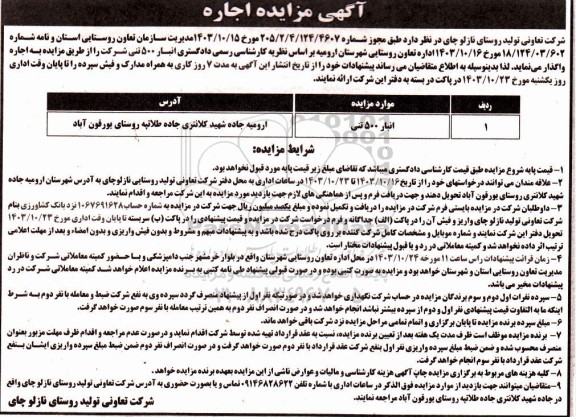 آگهی مزایده اجاره
شرکت تعاونی تولید روستای نازلو چای در نظر دارد طبق مجوز شماره ۲۰۵/۲/۴/۱۲۴/۴۶۰۷ مورخ ۱۴۰۳/۱۰/۱۵ مدیریت سازمان تعاون روستایی استان و نامه شماره
۱۸/۱۲۴/۰۳/۶۰۲ مورخ ۱۴۰۳/۱۰/۱۶ اداره تعاون روستایی شهرستان ارومیه بر اساس نظریه کارشناسی رسمی دادگستری انبار ۵۰۰ تنی شرکت را از طریق مزایده به اجاره
واگذار می‌نماید. لذا بدینوسیله به اطلاع متقاضیان می رساند پیشنهادات خود را از تاریخ انتشار این آگهی به مدت ۷ روز کاری به همراه مدارک و فیش سپرده را تا پایان وقت اداری
روز یکشنبه مورخ ۱۴۰۳/۱۰/۲۳ در پاکت در بسته به دفتر این شرکت ارائه نمایند.
ردیف موارد مزایده آدرس
۱ انبار ۵۰۰ تنی ارومیه جاده شهید کلانتری جاده طلائیه روستای یورقون آباد
شرایط مزایده:
۱- قیمت پایه شروع مزایده طبق قیمت کارشناسی دادگستری میباشد که تقاضای مبلغ زیر قیمت پایه مورد قبول نخواهد بود.
۲- علاقه مندان می توانند درخواستهای خود را از تاریخ ۱۴۰۳/۱۰/۱۶ تا ۱۴۰۳/۱۰/۲۳ در ساعات اداری به محل دفتر شرکت تعاونی تولید روستایی نازلوچای به آدرس شهرستان ارومیه جاده
شهید کلانتری روستای یورقون آباد تحویل دهند و جهت دریافت فرم و پس از هماهنگی های لازم جهت بازدید مورد مزایده به این شرکت مراجعه و اقدام نمایند.
۳- داوطلبان شرکت در مزایده بایستی فرم شرکت در مزایده را دریافت و تکمیل نموده و مبلغ یکصد میلیون ریال جهت شرکت در مزایده به شماره حساب ۱۰۶۷۶۹۱۶۲۸ نزد بانک کشاورزی بنام
شرکت تعاونی تولید نازلو چای واریز و فیش آن را در پاکت (الف) جداگانه و فرم درخواست شرکت در مزایده و قیمت پیشنهادی را در پاکت (ب) سربسته تا پایان وقت اداری مورخ ۱۴۰۳/۱۰/۲۳
تحویل دفتر این شرکت نمایند و شماره موبایل و مشخصات کامل شرکت کننده بر روی پاکت درج شده باشد و به پیشنهادات مبهم و مشروط و بدون فیش واریزی و بدون امضاء و بعد از مهلت اعلامی
ترتیب اثر داده نخواهد شد و کمیته معاملاتی در رد و یا قبول پیشنهادات مختار است.
۴- زمان قرائت پیشنهادات راس ساعت ۱۱ مورخه ۱۴۰۳/۱۰/۲۴ در محل اداره تعاون روستایی شهرستان واقع در بلوار خرمشهر جنب دامپزشکی و با حضور کمیته معاملاتی شرکت و ناظران
مدیریت تعاون روستایی استان و شهرستان خواهد بود و مزایده به صورت کتبی بوده و در صورت قبولی پیشنهاد طی نامه کتبی به برنده مزایده اعلام خواهد شد کمیته معاملاتی شرکت در رد
پیشنهادات مخیر می باشد.
۵- سپرده نفرات اول و دوم و سوم برندگان مزایده در حساب شرکت نگهداری خواهد شد و در صورتیکه نفر اول از پیشنهاد منصرف گردد سپرده وی به نفع شرکت ضبط و معامله با نفر دوم به شرط
اینکه ما به التفاوت قیمت پیشنهادی نفر اول و دوم از سپرده بیشتر نباشد انجام خواهد شد و در صورت انصراف نفر دوم به همین ترتیب معامله با نفر سوم صورت خواهد گرفت.
۶- مبلغ سپرده برنده مزایده تا پایان برگزاری و اتمام تمامی مراحل مزایده نزد شرکت باقی خواهد ماند.
۷- برنده مزایده موظف است ظرف مدت یک هفته بعد از تعیین برنده مزایده، نسبت به عقد قرارداد تهیه شده توسط شرکت اقدام نماید و در صورت عدم مراجعه و اقدام ظرف مهلت مزبور بعنوان
منصرف محسوب شده و ضمن ضبط مبلغ سپرده واریزی نفر اول بنفع شرکت عقد قرارداد با نفر دوم صورت خواهد گرفت و در صورت انصراف نفر دوم ضمن ضبط مبلغ سپرده واریزی ایشان بنفع
شرکت عقد قرارداد با نفر سوم انجام خواهد گرفت.
۸- کلیه هزینه های مربوط به برگزاری مزایده چاپ آگهی هزینه کارشناسی و مالیات و عوارض ناشی از این مزایده بعهده برنده مزایده خواهد.
۹- متقاضیان میتوانند جهت بازدید از موارد مزایده فوق الذکر در ساعات اداری با شماره تلفن ۰۹۱۴۶۸۲۸۶۲۲ تماس و یا بصورت حضوری به آدرس شرکت تعاونی تولید روستای نازلو چای واقع
در جاده شهید کلانتری جاده طلائیه روستای یورقون آباد مراجعه نمایند.
شرکت تعاونی تولید روستای نازلو چای